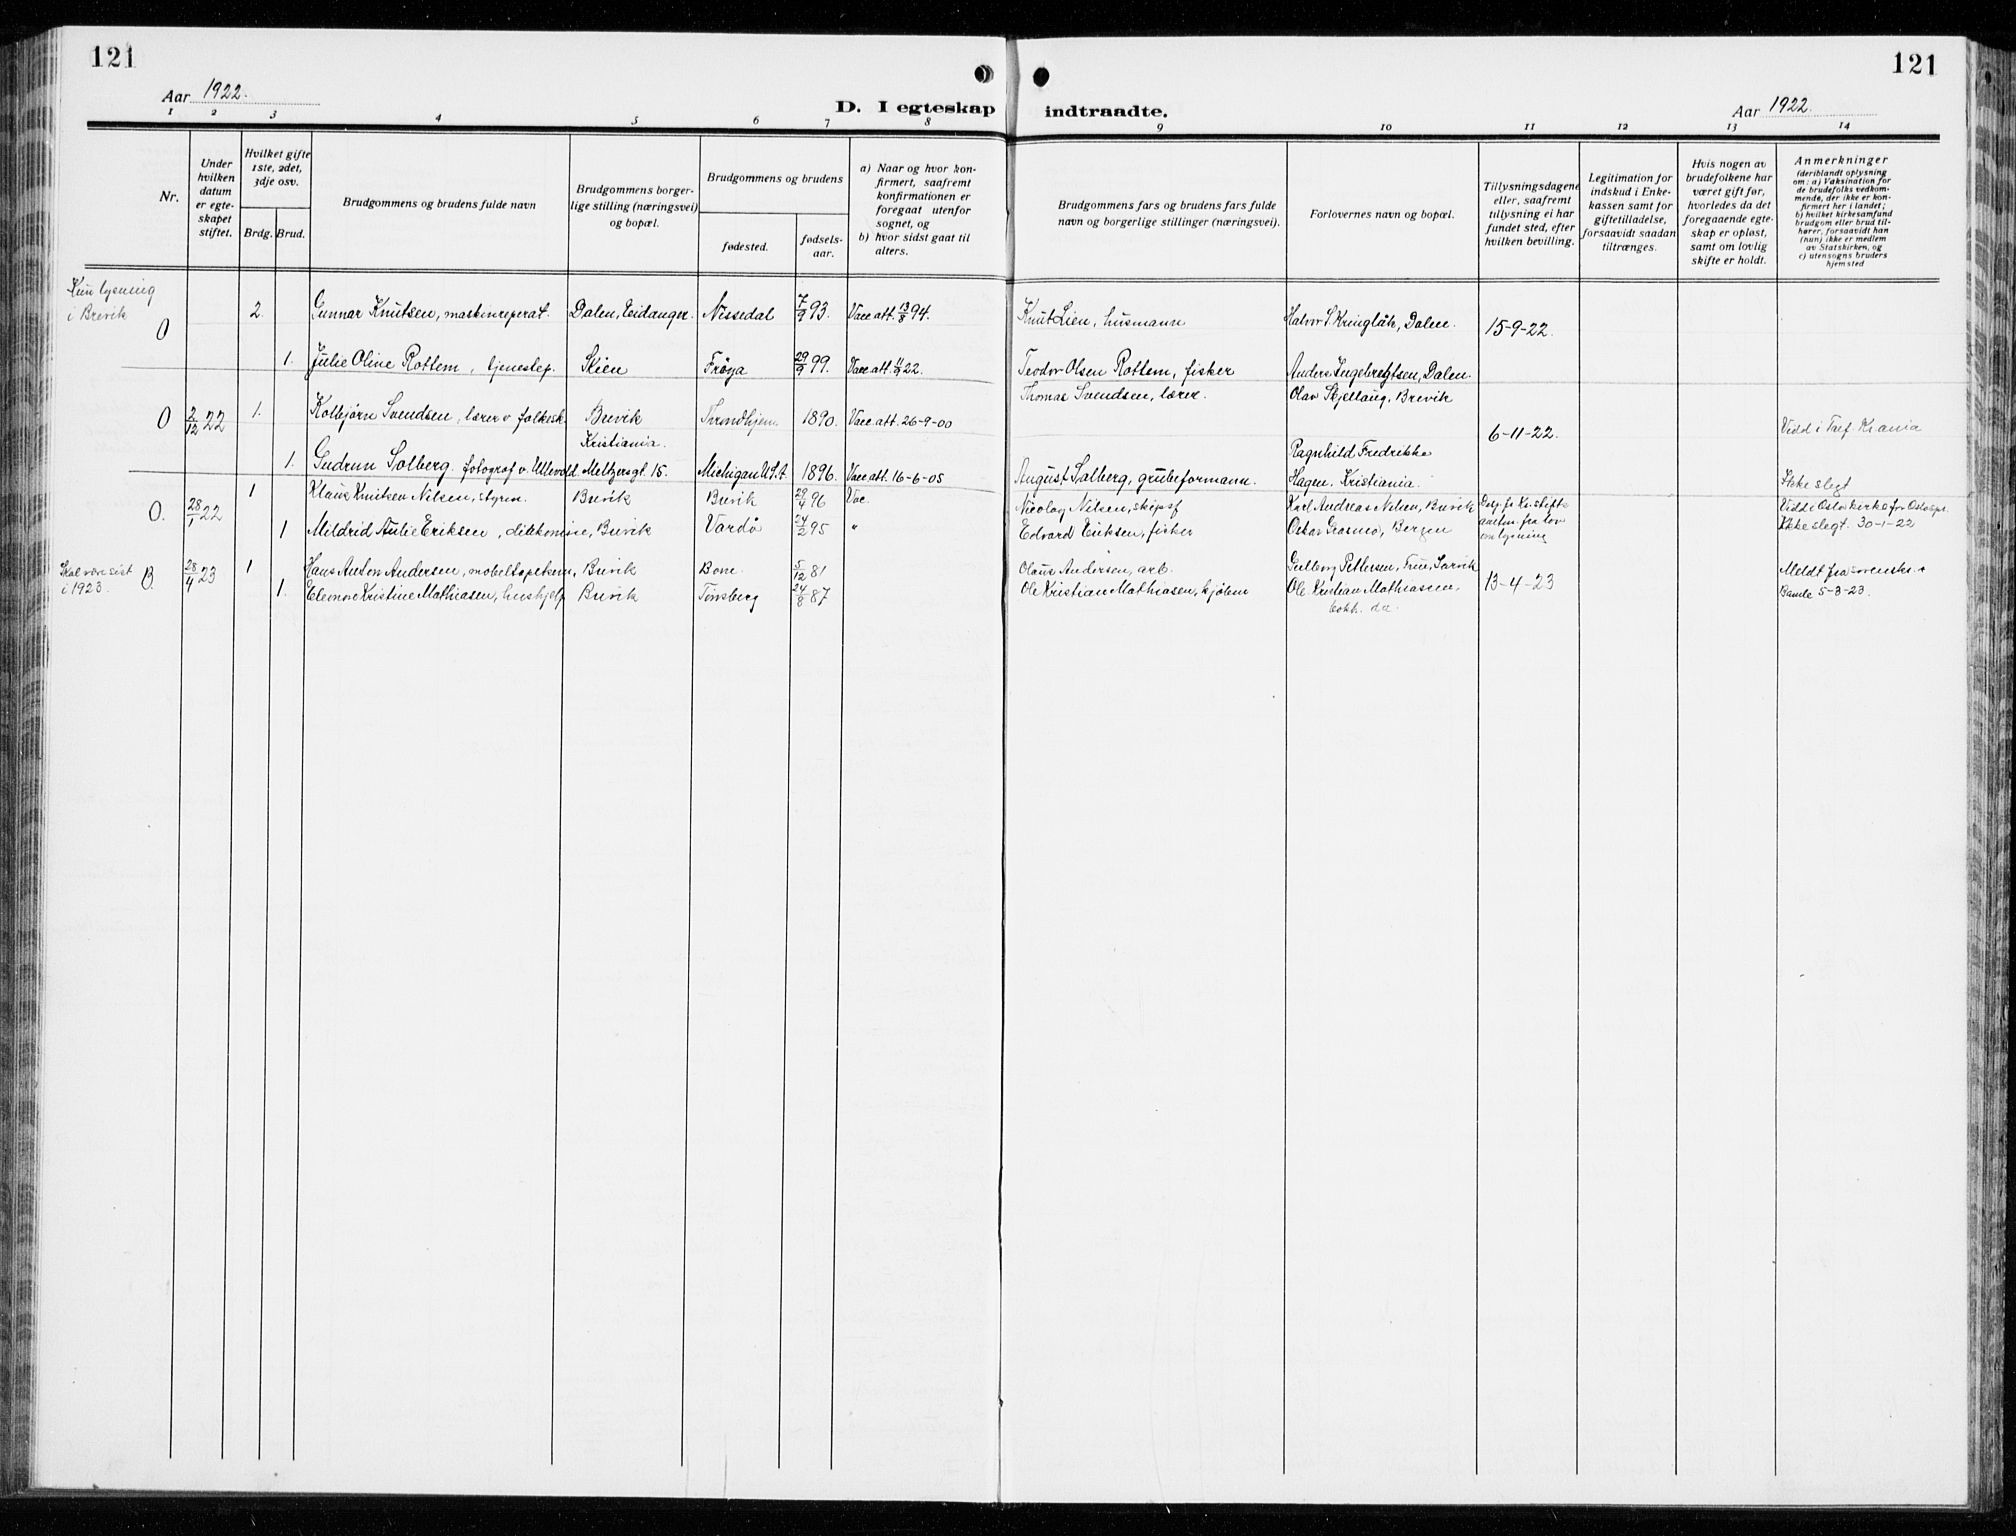 121
121
Aar 1922.
D. I egteskap indtraadte.
Aar 1922.
1 2 3 4 5 6 7 8 9 10 11 12 13 14
Nr.
Under
hvilken
datum
er egte-
skapet
stiftet.
Hvilket gifte
1ste, 2det,
3dje osv.
Brdg. Brud.
Brudgommens og brudens fulde navn
Brudgommens borger-
lige stilling (næringsvei)
og bopæl.
Brudgommens og brudens
fødested.
fødsels-
aar.
a) Naar og hvor kon-
firmert, saafremt
konfirmationen er
foregaat utenfor
sognet, og
b) hvor sidst gaat til
alters.
Brudgommens fars og brudens fars fulde
navn og borgerlige stillinger (næringsvei).
Forlovernes navn og bopæl.
Tillysningsdagene
eller, saafremt
tillysning ei har
fundet sted, efter
hvilken bevilling.
Legitimation for
indskud i Enke-
kassen samt for
giftetilladelse,
forsaavidt saadan
tiltrænges.
Hvis nogen av
brudefolkene har
været gift før,
hvorledes da det
foregaaende egte-
skap er opløst,
samt om lovlig
skifte er holdt.
Anmerkninger
(deriblandt oplysning
om: a) Vaksination for
de brudefolks vedkom-
mende, der ikke er kon-
firmert her i landet;
b) hvilket kirkesamfund
brudgom eller brud til-
hører, forsaavidt han
(hun) ikke er medlem
av Statskirken, og
c) utensogns bruders
hjemsted
Kun lysning
i Brevik
O 2. Gunnar Knutsen, maskinreperat. Dalen, Eidanger. Nissedal 7/9 93. Vacc att. 13/8 94. Knut Lien, husmann Halvor S Kringlåk, Dalen. 15-9-22.
1. Julie Oline Rottem, tjenestep. Skien Frøya 29/9 99. Vacc att. 22. Teodor Olsen Rottem, fisker Anders Ingebregtsen, Dalen.
O 2/12 22 1. Kolbjørn Svendsen, lærer v. folkesk. Brevik Trondhjem 1890. Vacc att. 26-9-00 Thomas Svendsen, lærer. Olav Skjellaug, Brevik 6-11-22. Vidd i Kiania
Kristiania.
1. Gudrun Solberg. fotograf v. Ullevold Meltzersgt. 15. Michigan U.S.A. 1896. Vacc att. 16-6-05 August Solberg, grubeformann. Ragnhild Fredrikke
Hagen, Kristiania. Ikke slegt
O. 28/1 22 1 Klaus Knutsen Nilsen, styrm. Brevik Brevik 29/4 96 Vac. Nicolay Nilsen, skipsf Karl Andreas Nilsen, Brevik Vidd i Oslo kirke for
1 Mildrid Aulie Eriksen, Brevik Vardø 24/2 95 " Edvard Eriksen, fisker Oskar Grasmo, Bergen lysning Ikke slegt. 30-1-22
Skal være sist
i 1923. B. 28/4 23 1 Hans Anton Andersen, møbeltapetserer, Brevik 5/12 81 Olaus Andersen, arb. Pettersen, Frue, 13-4-23 Meldt fra sorenskr. i
1. Kristine Mathiasen, hushjelp Brevik Tønsberg 24/8 87 Ole Kristian Mathiasen, Ole Kristian Mathiasen, Bamle 5-3-23.